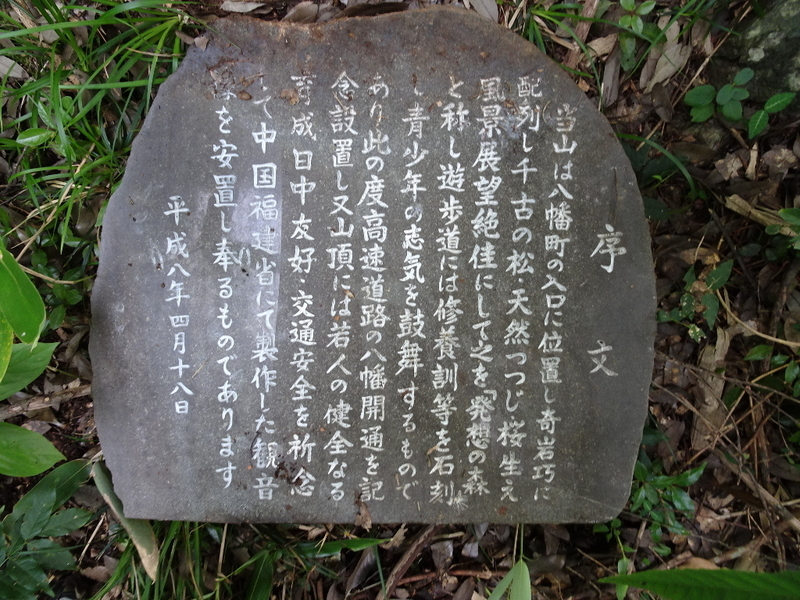 序文
当山は八幡町の入口に位置し奇岩巧に
配列し千古の松天然つつじ桜生え
風景展望絶佳にして之を「発想の森」
と称し遊歩道には修養訓等を石刻
し青少年の志気を鼓舞するもので
あり此の度高速道路の八幡開通を記
念設置し又山頂には若人の健全なる
育成日中友好交通安全を祈念
して中国福建省にて製作した観音
像を安置し奉るものであります
平成八年四月十八日